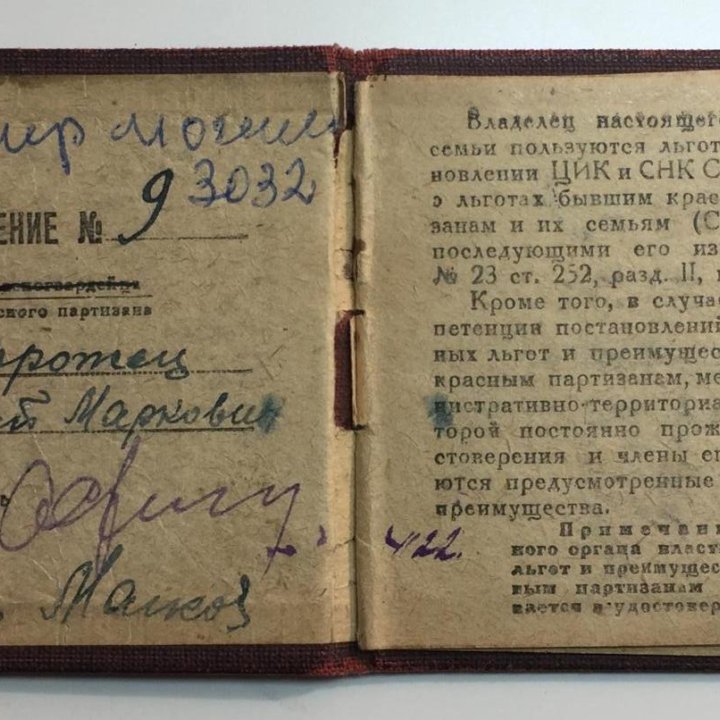 93032
ЕНИЕ № 9
сногвардейца
ского партизана
Маркови
Малков
422.
Владелец настоящег
семьи пользуются льгот
новлении ЦИК и СНК С
э льготах бывшим крас
занам и их семьям (С
последующими его из
№ 23 ст. 252, разд. II,
Кроме того, в случа
петенции постановлений
ных льгот и преимущес
красным партизанам, ме
инистративно-территориа
торой постоянно прож
стоверения и члены ег
ются предусмотренные
преимущества.
Примечан
ного органа власт
льгот и преимущес
ным партизанам
вается в удостовер